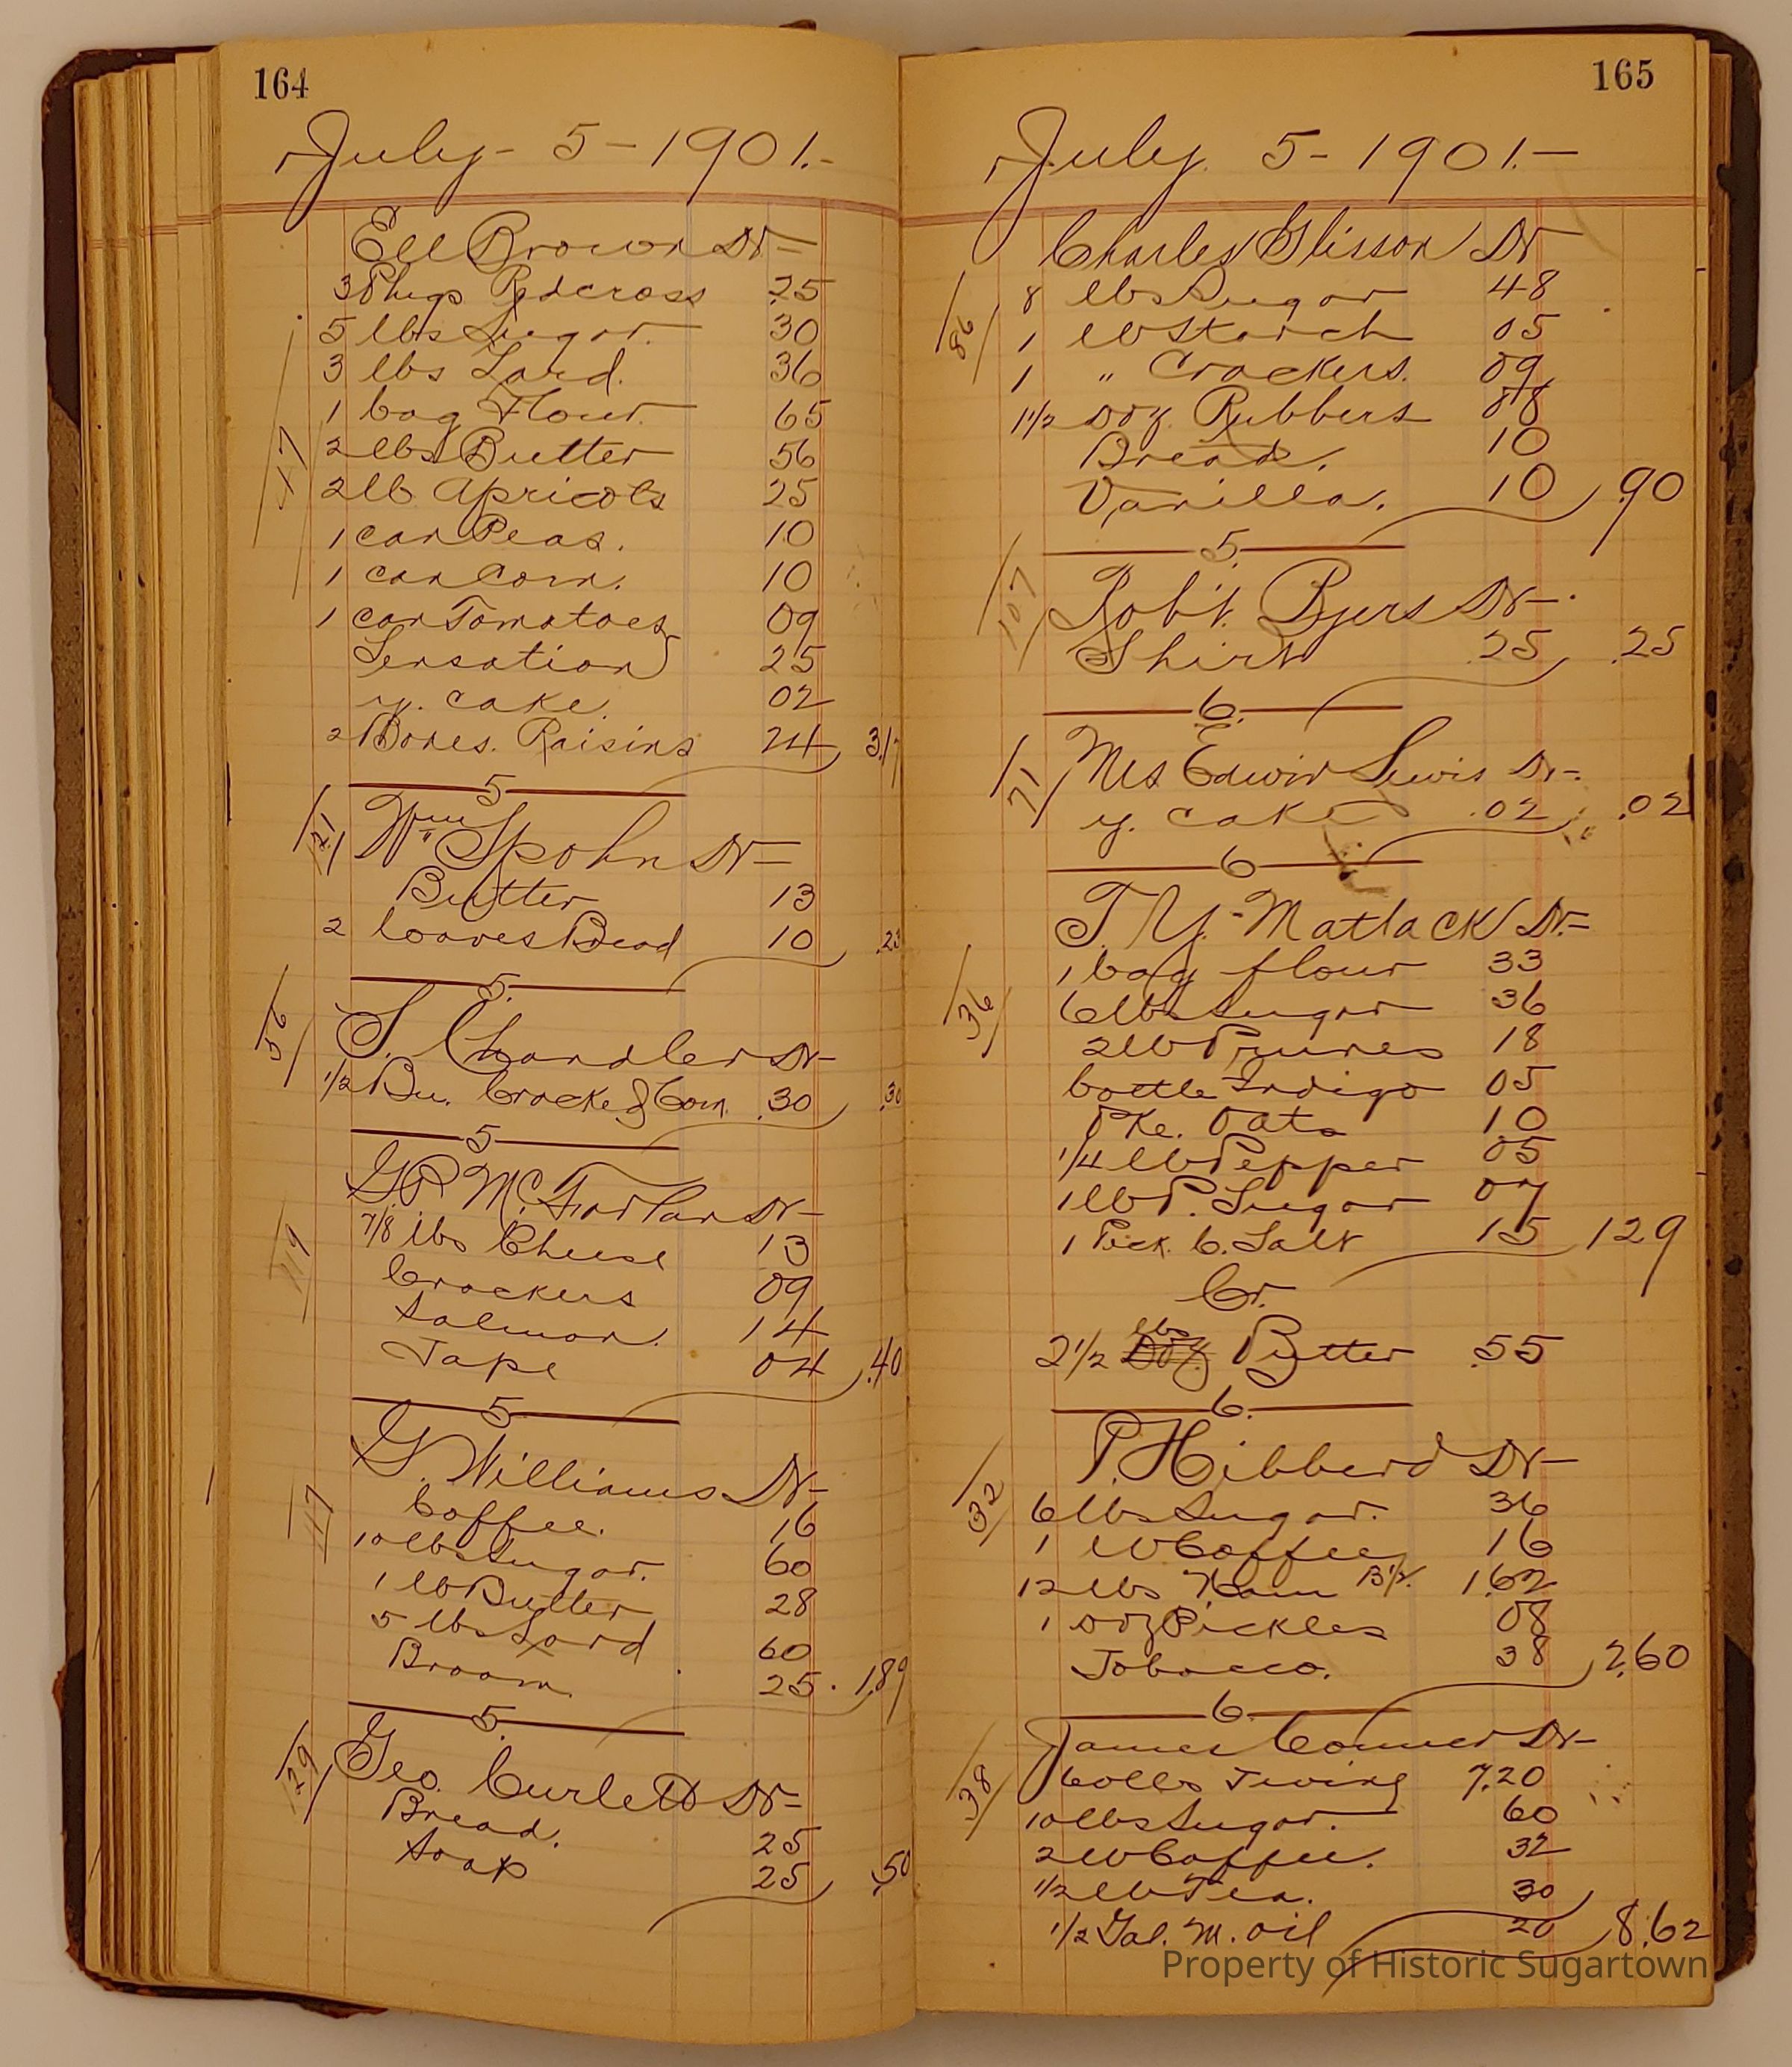 164
July - 5 - 1901.-
Ell Brown Dr -
3 Plugs Redcross 25
5 lbs Sugar. 30
3 lbs Lard. 36
1 bag Flour. 65
47
2 lbs Butter 56
2 lb Apricots 25
1 can Peas. 10
1 can Corn. 10
1 can Tomatoes 09
Sensation 25
y. cake. 02
2 Boxes. Raisins 24 3.17
5
121
Wm Spohn Dr -
Butter 13
2 loaves Bread 10 .23
5.
56
S. Chandler Dr -
1/2 Bu. Cracked Corn. .30 .30
5
G.P. McFarlan Dr -
7/8 lbs Cheese 13
119
Crackers 09
Salmon. 14
Tape 04 .40
5
G. Williams Dr -
117
Coffee. 16
10 lbs Sugar. 60
1 lb Butter 28
5 lbs Lard 60
Broom. 25. 1.89
5.
129
Geo. Curlett Dr -
Bread. 25
Soap 25 .50
165
July. 5 - 1901. -
Charles Glisson Dr
86
8 lbs Sugar 48
1 lb Starch 05
1 " Crackers. 09
1 1/2 Doz. Rubbers 08
Bread. 10
Vanilla. 10 .90
5.
107
Rob't. Byers Dr -
Shirt .25 .25
6.
71
Mrs Edwin Lewis Dr -
y. cake .02 .02
6
T. Y. Matlack Dr. -
1 bag flour 33
36
6 lbs Sugar 36
2 lb Prunes 18
bottle Indigo 05
Pke. Oats 10
1/4 lb Pepper 05
1 lb P. Sugar 07
1 Peck. C. Salt 15 129
Cr.
2 1/2 lbs Butter .55
6.
P. Hibberd Dr -
32
6 lbs Sugar. 36
1 lb Coffee 16
12 lbs Ham 13 1/2. 1.62
1 Doz Pickles 08
Tobacco. 38 2.60
6.
James Conner Dr -
38
60 lbs Twine 7.20
10 lbs Sugar. 60
2 lb Coffee. 32
1/2 lb Tea. 30
1/2 Gal. M. oil 20 8.62
Property of Historic Sugartown